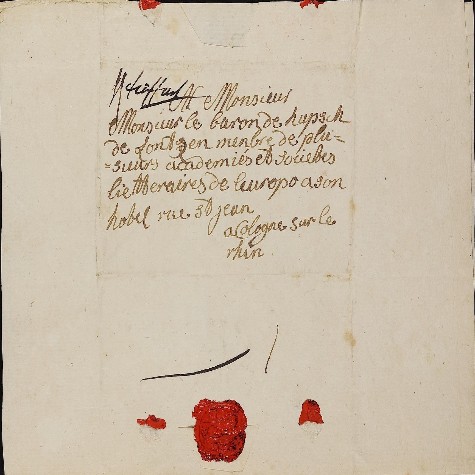 A Monsieur
Monsieur le baron de hupsch
de lontzen menbre de plu-
-sieurs academies et socieles
lietteraires de leuropo a son
hotel rue st jean
a Cologne sur le
rhin